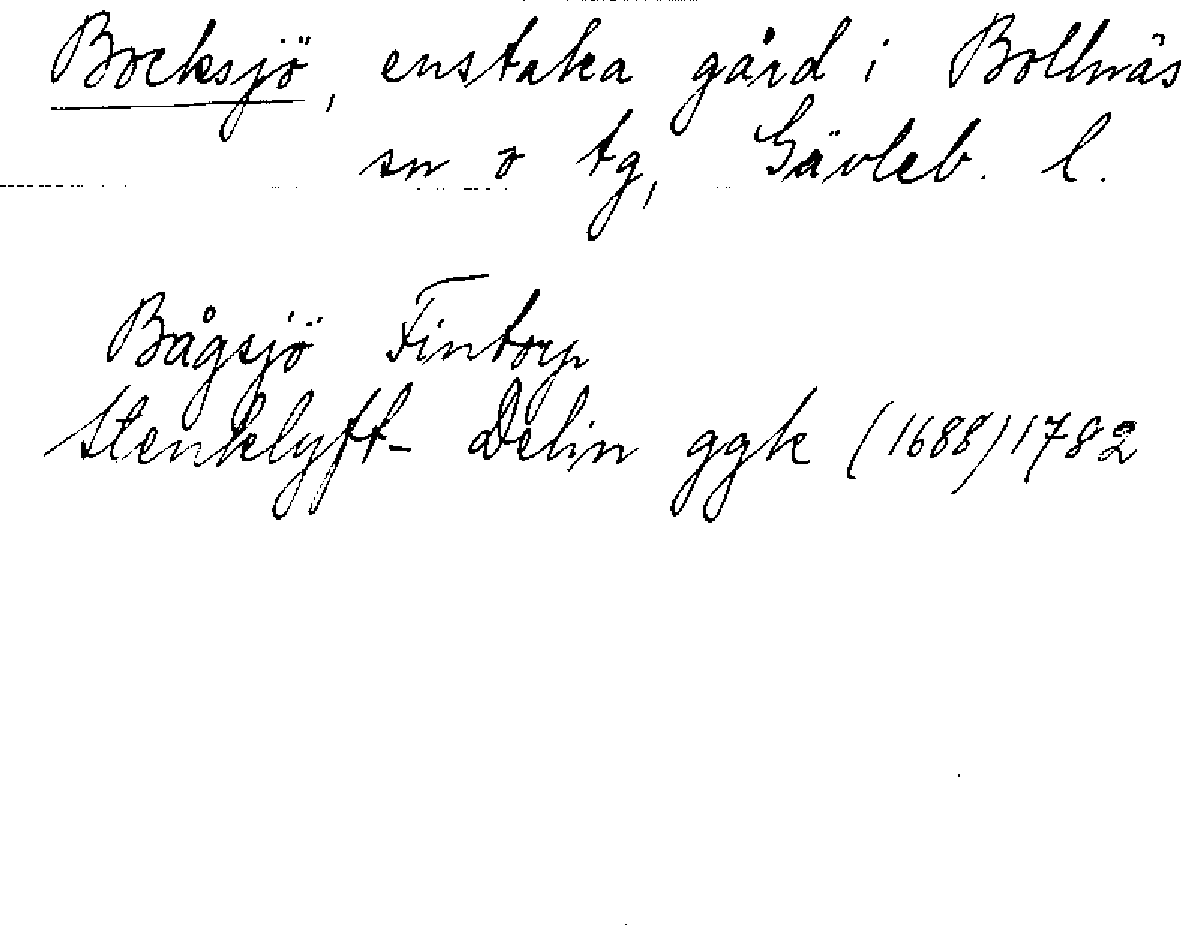 Bocksjö, enstaka gård i Bollnäs
sn o tg, Gävleb. l.
Bågsjö Fintorp
Stenklyft- Delin ggk (1688) 1782